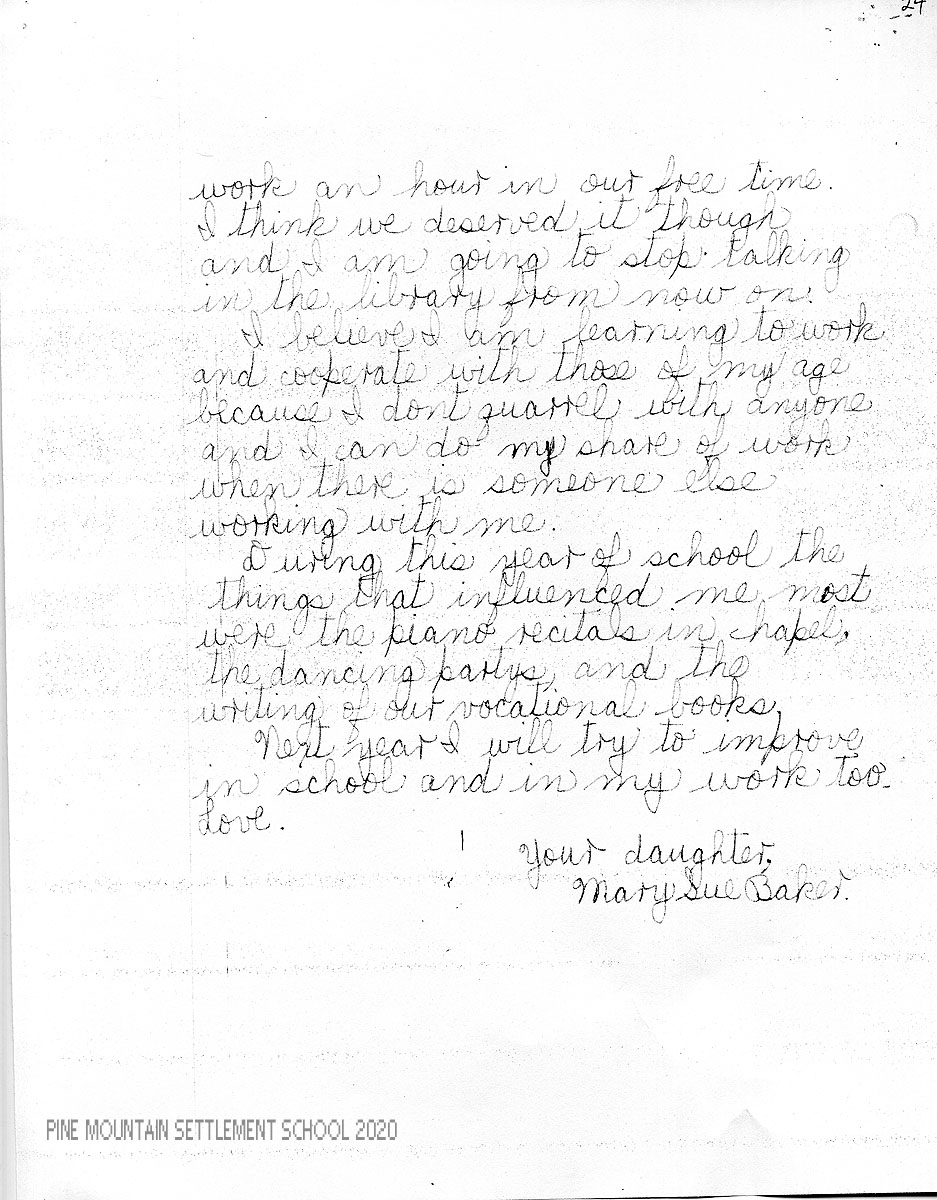 24
work an hour in our free time.
I think we deserved it though
and I am going to stop talking
in the library from now on.
I believe I am learning to work
and cooperate with those of my age
because I dont quarrel with anyone
and I can do my share of work
when there is someone else
working with me.
During this year of school the
things that influenced me most
were the piano recitals in chapel,
the dancing partys, and the
writing of our vocational books.
Next year I will try to improve
in school and in my work too.
Love.
Your daughter,
Mary Sue Baker.
PINE MOUNTAIN SETTLEMENT SCHOOL 2020